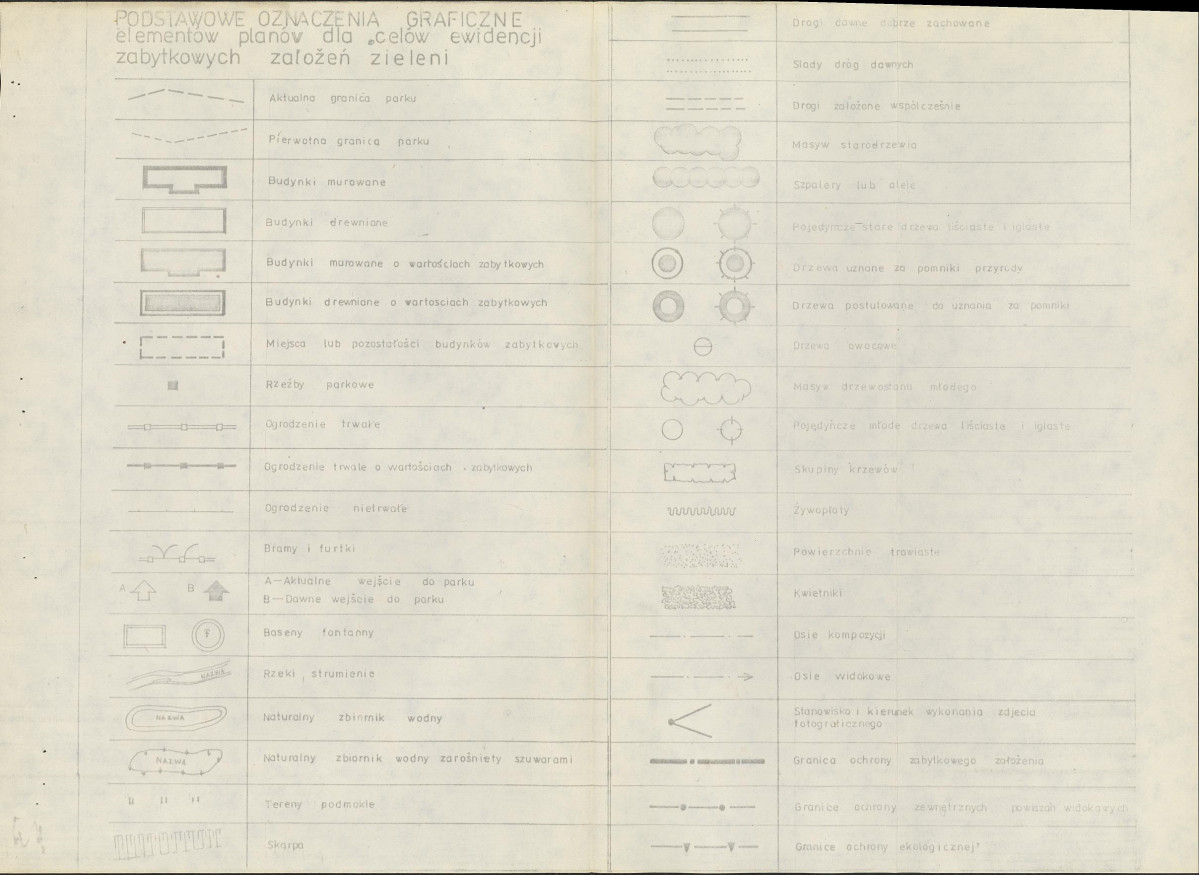 PODSTAWOWE OZNACZENIA GRAFICZNE
elementów planów dla celów ewidencji
zabytkowych założeń zieleni
Aktualna granica parku
Pierwotna granica parku
Budynki murowane
Budynki drewniane
Budynki murowane o wartościach zabytkowych
Budynki drewniane o wartosciach zabytkowych
Miejsca lub pozostałości budynków zabytkowych
Rzeźby parkowe
Ogrodzenie trwałe
Ogrodzenie trwałe o wartościach zabytkowych
Ogrodzenie nietrwałe
Bramy i furtki
A B
A—Aktualne wejście do parku
B—Dawne wejście do parku
Baseny fontanny
NAZWA
Rzeki, strumienie
NAZWA
Naturalny zbiornik wodny
NAZWA
Naturalny zbiornik wodny zarośniety szuwarami
Tereny podmokłe
Skarpa
Drogi dawne dobrze zachowane
Slady dróg dawnych
Drogi założone współcześnie
Masyw starodrzewia
Szpalery lub aleje
Pojedyncze stare drzewa liściaste i iglaste
Drzewa uznane za pomniki przyrody
Drzewa postulowane do uznania za pomniki
Drzewa owocowe
Masyw drzewostanu młodego
Pojedyńcze młode drzewa liściaste i iglaste
Skupiny krzewów
Żywopłoty
Powierzchnie trawiaste
Kwietniki
Osie kompozycji
Osie widokowe
Stanowisko i kierunek wykonania zdjęcia
fotograficznego
Granica ochrony zabytkowego założenia
Granice ochrony zewnętrznych powiązań widokowych
Granice ochrony ekologicznej